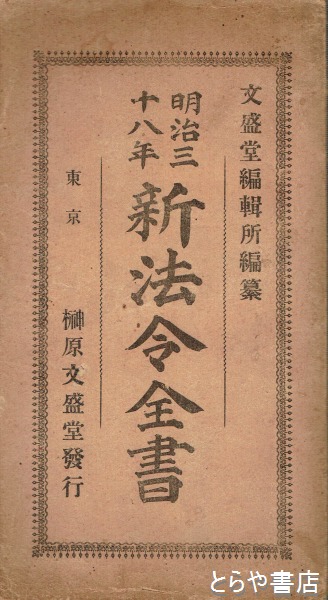 文盛堂編輯所編纂
明治三
十八年
新法令全書
東京
榊原文盛堂發行
とらや書店